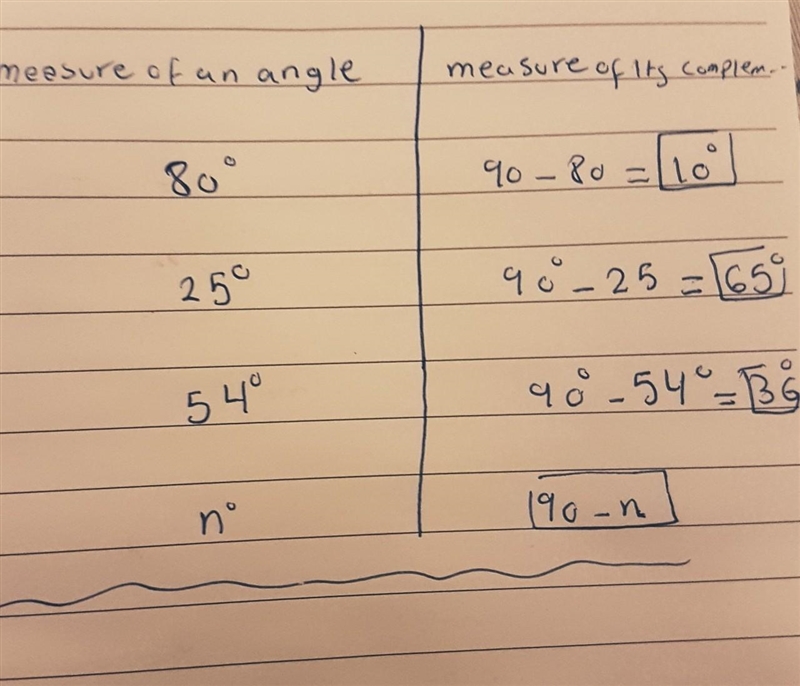 meesure of an angle measure of Its complem...
80° 90 - 80 = 10°
25° 90° - 25 = 65°
54° 90° - 54° = 36°
n° 90 - n